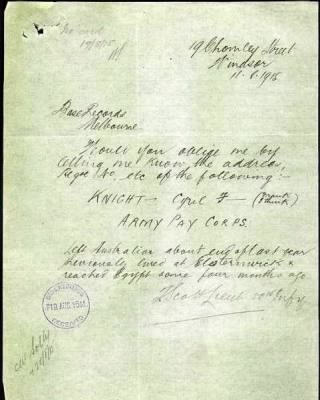 No card
17/8/15
19 Chomley Street
Windsor
11.8.1915
Base Records
Melbourne
Would you oblige me by
letting me know the address,
Regt No, etc of the following:-
KNIGHT - Cyril F - (
I think)
ARMY PAY CORPS.
Left Australia about end of last year
Previously lived at Elsternwick &
reached Egypt some four months ago
Lieut
AUG 1915
RECORDS